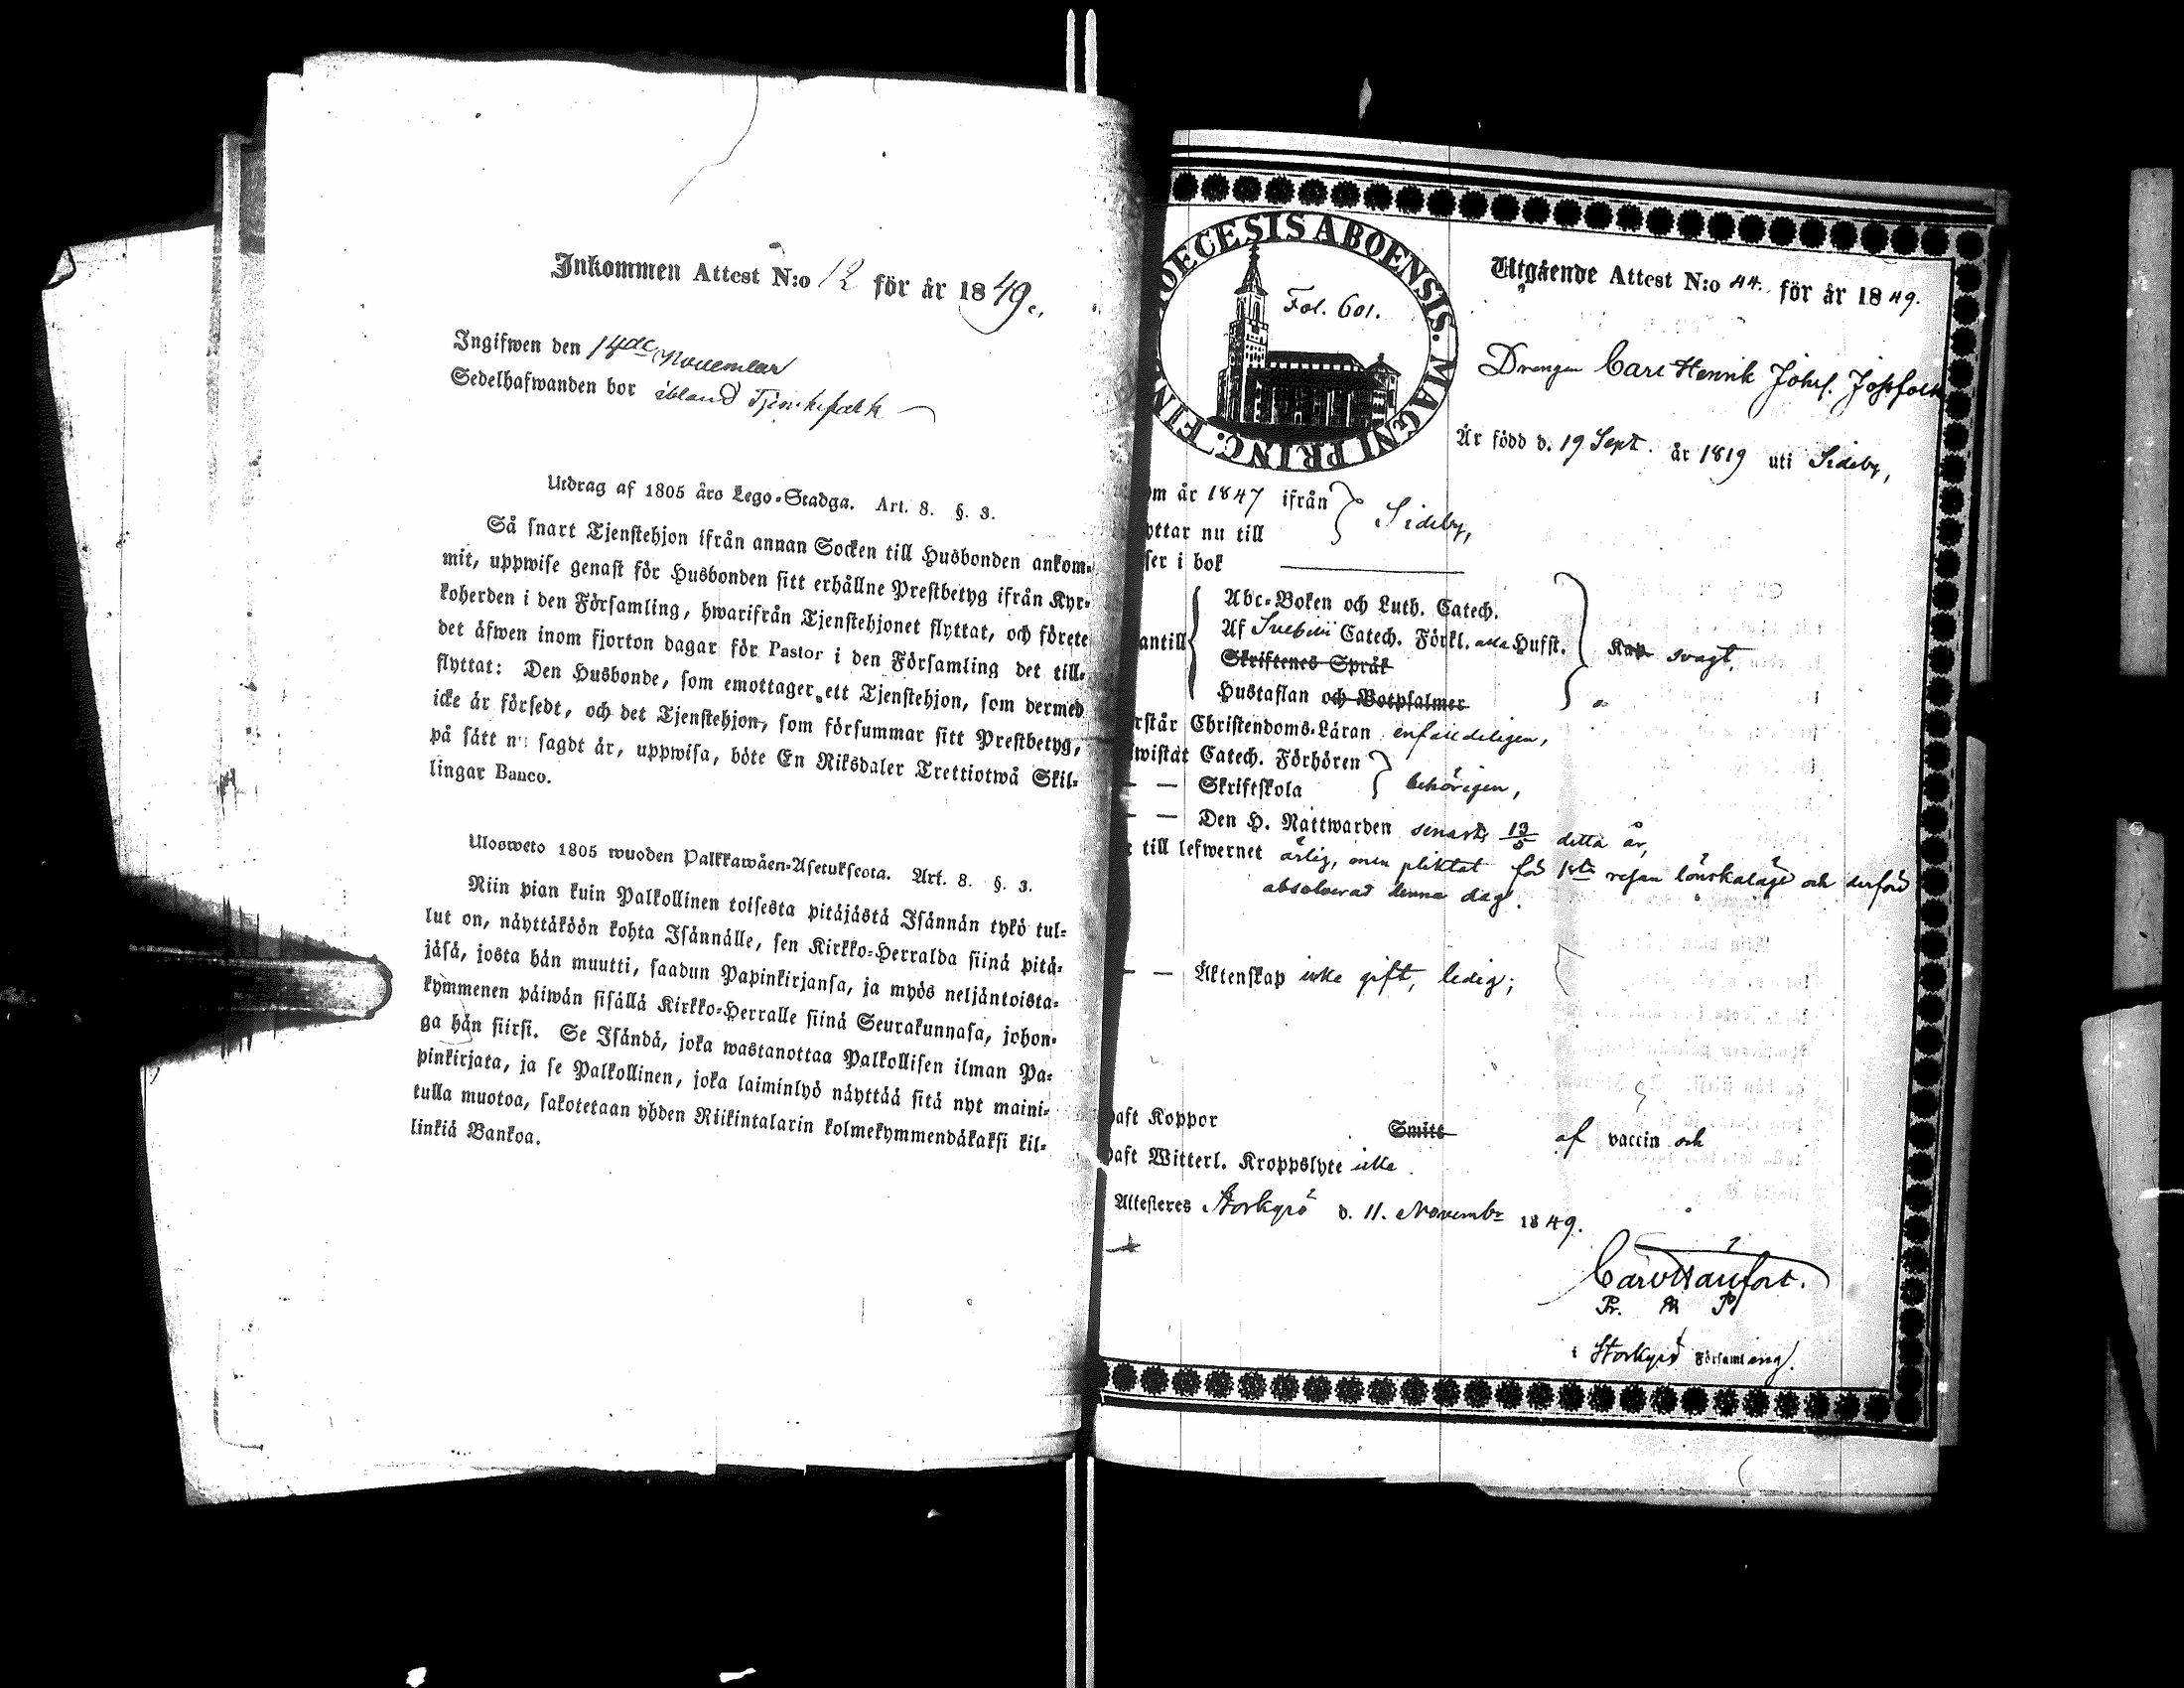 Inkommen Attest N:o 12 för år 1849.
Ingifwen den 14de November
Sedelhafwanden bor ibland Tjenstefolk
Utdrag af 1805 års Lego-Stadga. Art. 8. §. 3.
Så snart Tjenstehjon ifrån annan Socken till Husbonden ankom-
mit, uppwise genast för Husbonden sitt erhållne Prestbetyg ifrån Kyr-
koherden i den Församling, hwarifrån Tjenstehjonet flyttat, och förete
det äfwen inom fjorton dagar för Pastor i den Församling det till-
flyttat: Den Husbonde, som emottager ett Tjenstehjon, som dermed
icke är försedt, och det Tjenstehjon, som försummar sitt Prestbetyg,
på sätt nu sagdt är, uppwisa, böte En Riksdaler Trettiotwå Skil-
lingar Banco.
Ulosweto 1805 wuoden Palkkawäen-Asetuksesta. Art. 8. §. 3.
Niin pian kuin Palkollinen toisesta pitäjästä Isännän tykö tul-
lut on, näyttäköön kohta Isännälle, sen Kirkko-Herralda siinä pitä-
jäsä, josta hän muutti, saadun Papinkirjansa, ja myös neljäntoista-
kymmenen päiwän sisällä Kirkko-Herralle siinä Seurakunnasa, johon-
ga hän siirsi. Se Isändä, joka wastanottaa Palkollisen ilman Pa-
pinkirjata, ja se Palkollinen, joka laiminlyö näyttää sitä nyt maini-
tulla muotoa, sakotetaan yhden Riikintalarin kolmekymmendäkaksi kil-
linkiä Bankoa.
DIOECESIS ABOENSIS. MAGNI PRINC. FIN
Fol. 601.
Utgående Attest N:o 44. för år 1849.
Drengen Carl Henrik Johs.
Är född d. 19 Sept. år 1819 uti Sideby,
om år 1847 ifrån
yttar nu till
Sideby,
ser i bok
antill
Abc-Boken och Luth. Catech.
Af Svebilii Catech. Förkl. Husst.
Skriftenes Språk
Hustaflan och Botpsalmer
svagt,
rstår Christendoms-Läran enfalldeligen,
wistat Catech. Förhören
— — Skriftskola
behörigen,
— — Den H. Nattwarden senast 13/5 detta år,
till lefwernet ärlig, men pliktat för 1sta resan lönskaläge och derföre
absolverad denna dag.
— — Äktenskap icke gift, ledig;
haft Koppor Smitt af vaccin och
haft Witterl. Kroppslyte icke
Attesteres Storkyro d. 11. Novembr 1849.
i Storkyro Församling.